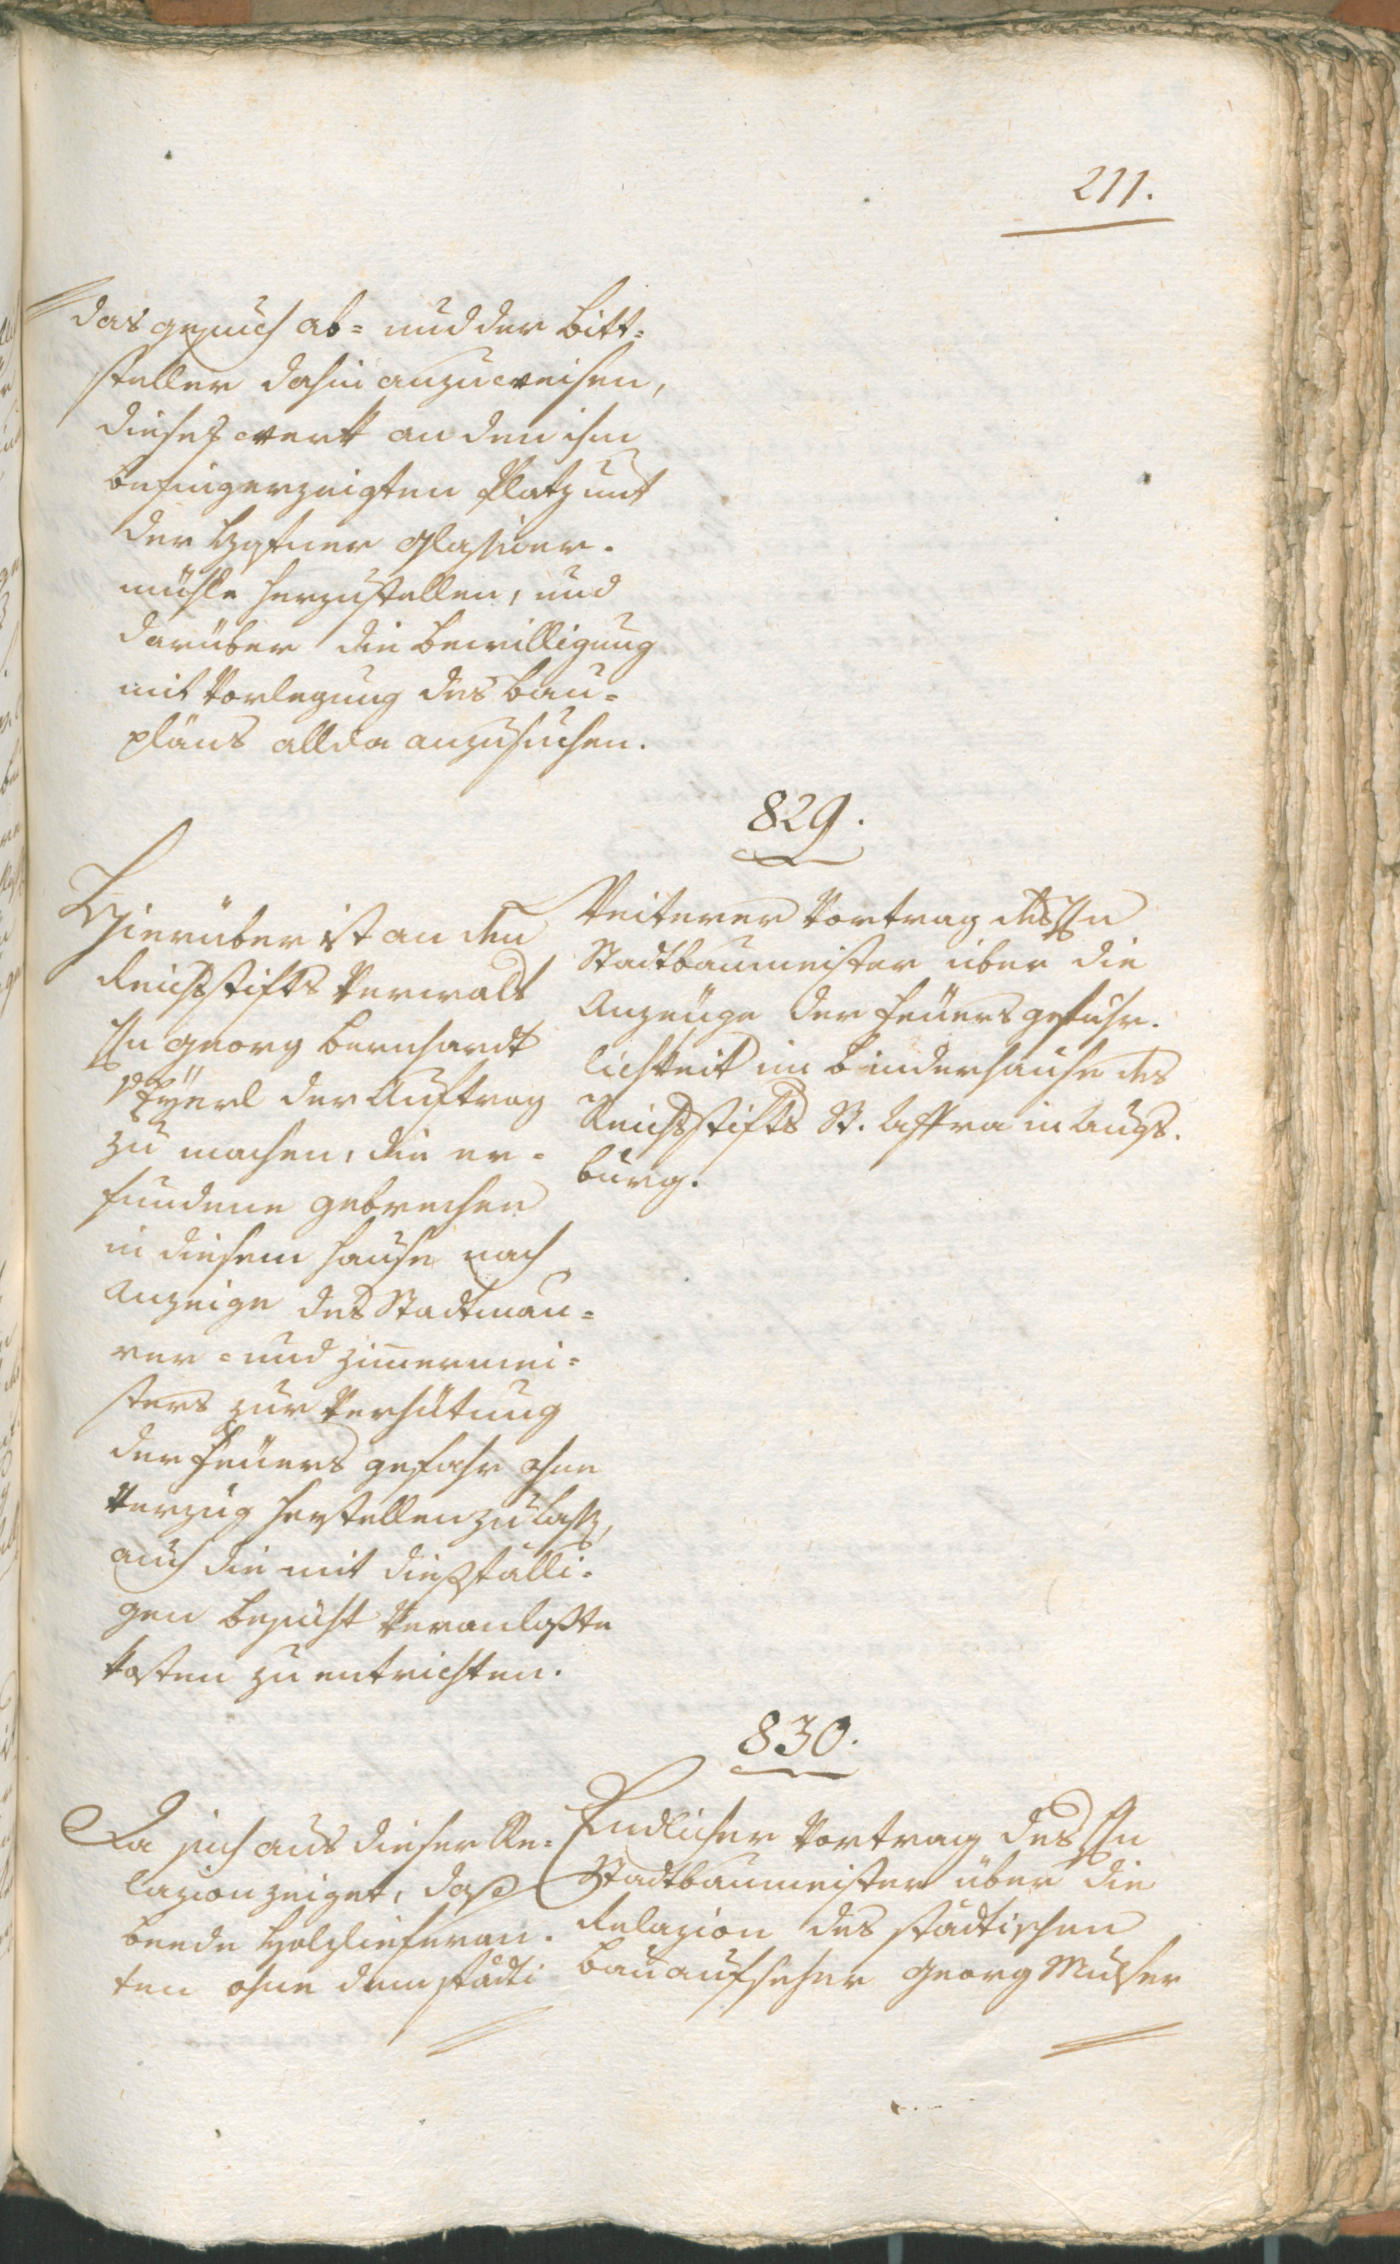 211.
das gesuch ab- und der Bitt-
steller dahin anzuweisen,
dieses werk an den ihm
befingerzeigten Platz mit
der Glasier-
mühle herzustellen, und
darüber die Bewilligung
mit Vorlegung des Bau-
plans allda anzusuchen.
829.
Hierüber ist an den
Reichsstifts Verwalt
Hn Georg Bernhardt
der Auftrag
zu machen, die er-
fundene gebrechen
in diesem Hause nach
Anzeige des Stadtmau-
rer- und Zimmermei-
sters zur Verhütung
der Feuers gefahr ohne
Verzug herstellen zu lassen,
auch die mit dießfälli-
gen Besicht veranlaßte
kosten zu entrichten.
Weiterer Vortrag des Hn
Stadtbaumeister über die
Anzeüge der feuersgefähr-
lichkeit im Binderhause des
Reichsstifts St. Affra in Augs-
burg.
830.
Da sich aus dieser Re-
lazion zeiget, daß
beede Holzlieferan-
ten ohne dem städti
Endlicher Vortrag des Hn
Stadtbaumeister über die
Relazion des städtischen
Bauaufseher Georg